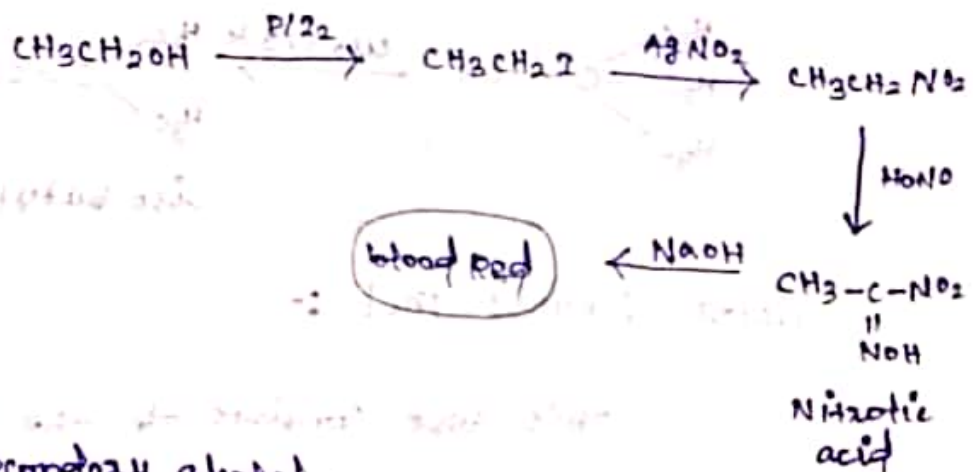 CH3CH2OH P/I2 CH3CH2I AgNO2 CH3CH2NO2
HONO
blood Red NaOH CH3-C-NO2
||
NOH
Nitrolic
acid
alcohol